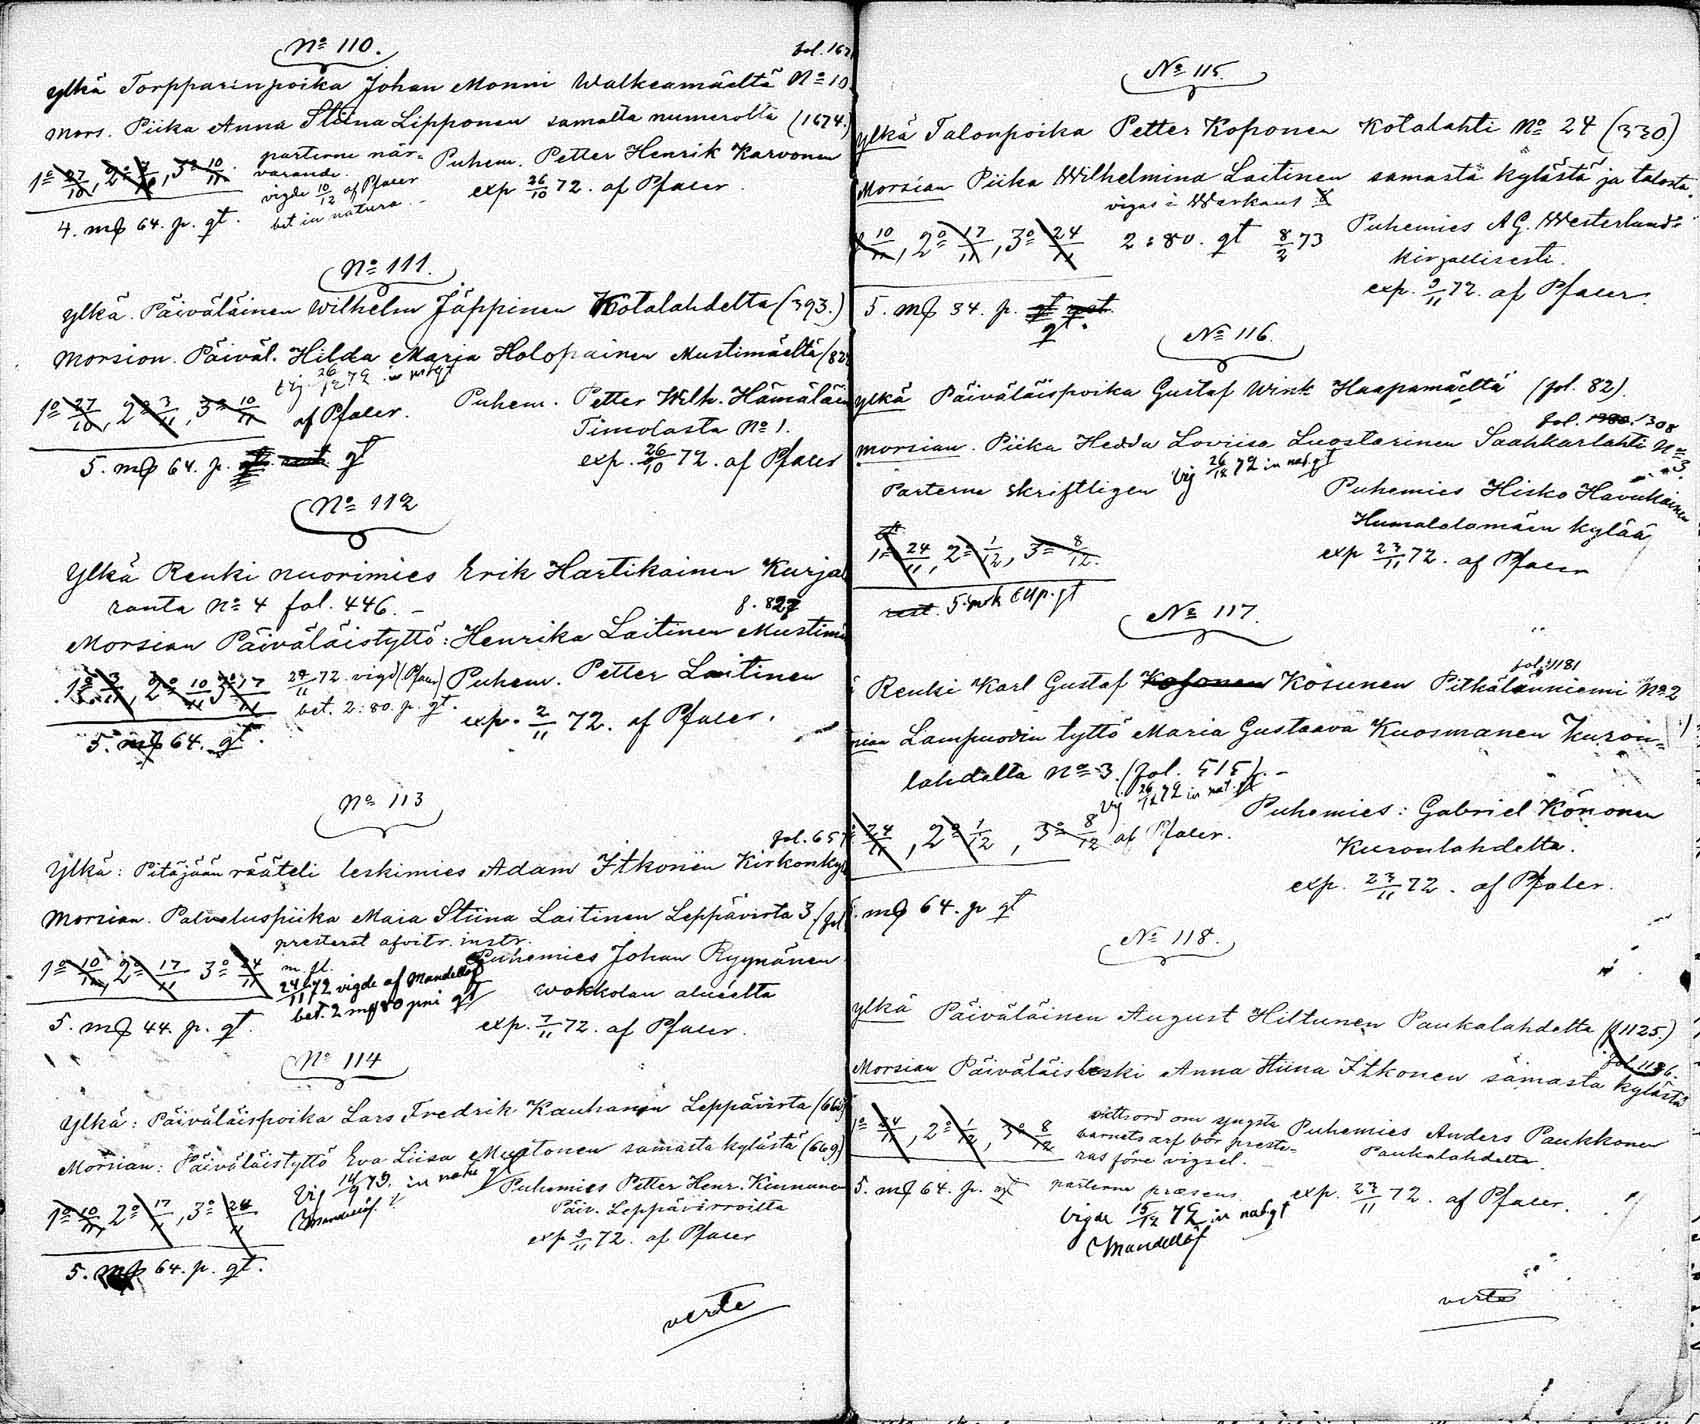 No 110.
fol. 167
Ylkä Torpparinpoika Johan Monni Walkeamäeltä No 10
Mors. Piika Anna Stiina Lipponen samalta numerolta (1674.)
1o 27/10, 2o 3/11, 3o 10/11. parterne när-
varande. Puhem. Petter Henrik Karvonen
vigde 10/12 af Pfaler exp 26/10 72. af Pfaler.
4. mk 64. p. gt. bet in natura. -
No 111.
Ylkä. Päiväläinen Wilhelm Jäppinen Kotalahdelta (393.)
Morsian. Päiväl. Hilda Maria Holopainen Mustimäeltä (82
vig. 26/12 72 in nat gt
1o 27/10, 2o 3/11, 3o 10/11 af Pfaler. Puhem. Petter Wilh. Hämäläin
Timolasta No 1.
5. mk 64. p. gt exp. 26/10 72. af Pfaler
No 112
Ylkä Renki nuorimies Erik Hartikainen Kurja
ranta No 4 fol. 446. -
f. 827
Morsian Päiväläistyttö: Henrika Laitinen Mustim
1o 3/11, 2o 10/11 3o 17/11 24/11 72. vigd (Pfaler) Puhem. Petter Laitinen
bet. 2:80. p. gt. exp. 2/11 72. af Pfaler.
5. mk 64. gt.
No 113
fol. 657
Ylkä: Pitäjään rääteli leskimies Adam Itkonen Kirkonky
Morsian. Palveluspiika Maia Stiina Laitinen Leppävirta 3. (fol
presterat afvitr. instr.
1o 10/11, 2o 17/11 3o 24/11 m. fl. Puhemies Johan Ryynänen
24/11 72 vigde af Mandellöf wokkolan alueelta
bet. 2 mk 80 pni gt
5. mk 44. p. gt. exp. 7/11 72. af Pfaler.
No 114
Ylkä: Päiväläispoika Lars Fredrik Kauhanen Leppävirta (66
Morsian: Päiväläistyttö Eva Liisa Mustonen samasta kylästä (669)
Vig 14/9 73. in natu gt
1o 10/11, 2o 17/11, 3o 24/11 Mandellöf. Puhemies Petter Henr. Kinnunen
Päiv. Leppävirroilta
exp 9/11 72. af Pfaler
5. mk 64. p. gt.
verte
No 115.
Ylkä Talonpoika Petter Koponen Kotalahti No 24 (330)
Morsian Piika Wilhelmina Laitinen samasta kylästä ja talosta.
vigas i Warkaus
10/11, 2o 17/11, 3o 24/11 2:80. gt 8/2 73 Puhemies AG. Westerlund
kirjallisesti.
5. mk 34. p. gt. exp. 9/11 72. af Pfaler.
No 116.
Ylkä Päiväläispoika Gustaf Wink Haapamäeltä (fol. 82).
fol. 1308
Morsian. Piika Hedda Loviisa Luostarinen Saahkarlahti No 3.
Parterne skriftligen Vig 26/12 72 in nat. gt Puhemies Hisko Havukainen
Humalalamäen kylää
1o 24/11, 2o 1/12, 3o 8/12. exp 23/11 72. af Pfaler
5. mk 64 p. gt
No 117.
fol. 1181
Renki Karl Gustaf Kosonen Kosunen Pitkälänniemi No 2
Lampuodin tyttö Maria Gustaava Kuosmanen Kuron-
lahdelta No 3. (fol. 515). -
Vig 26/12 72 in nat. gt
24/11, 2o 1/12, 3o 8/12 af Pfaler. Puhemies: Gabriel Könönen
Kuronlahdelta.
exp. 23/11 72. af Pfaler.
mk 64. p gt
No 118.
Ylkä Päiväläinen August Hiltunen Paukalahdelta (f 1125.)
fol. 1136.
Morsian Päiväläisleski Anna Stiina Itkonen samasta kylästä
1o 24/11, 2o 1/12, 3o 8/12 vittsord om yngsta
barnets arf bör preste-
ras före vigsel. Puhemies Anders Paukkonen
Paukalahdelta.
5. mk 64. p. gt parterne præsens. exp. 23/11 72. af Pfaler.
Vigde 15/12 72 in nat gt
Mandellöf
verte